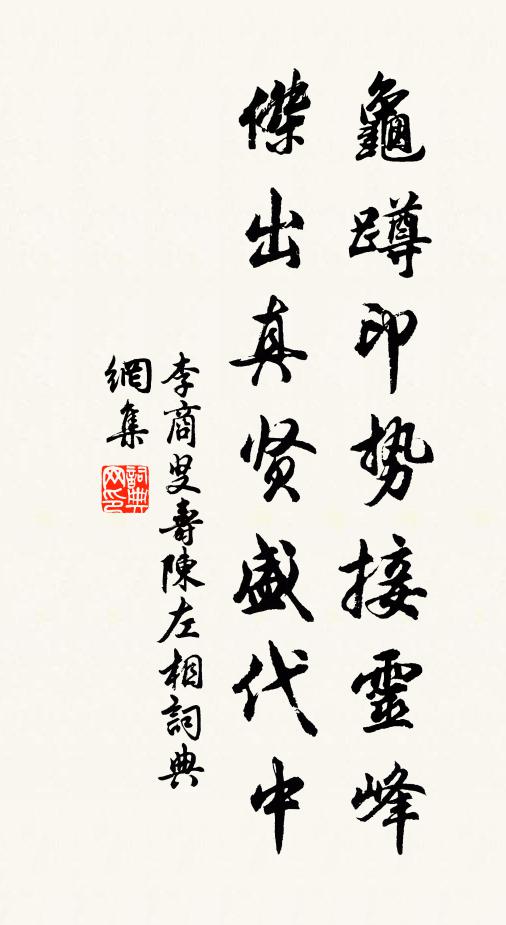 龜蹲印势接靈峰
傑出真贤盛代中
李商叟壽陳左相詞典
網集
詞典網印